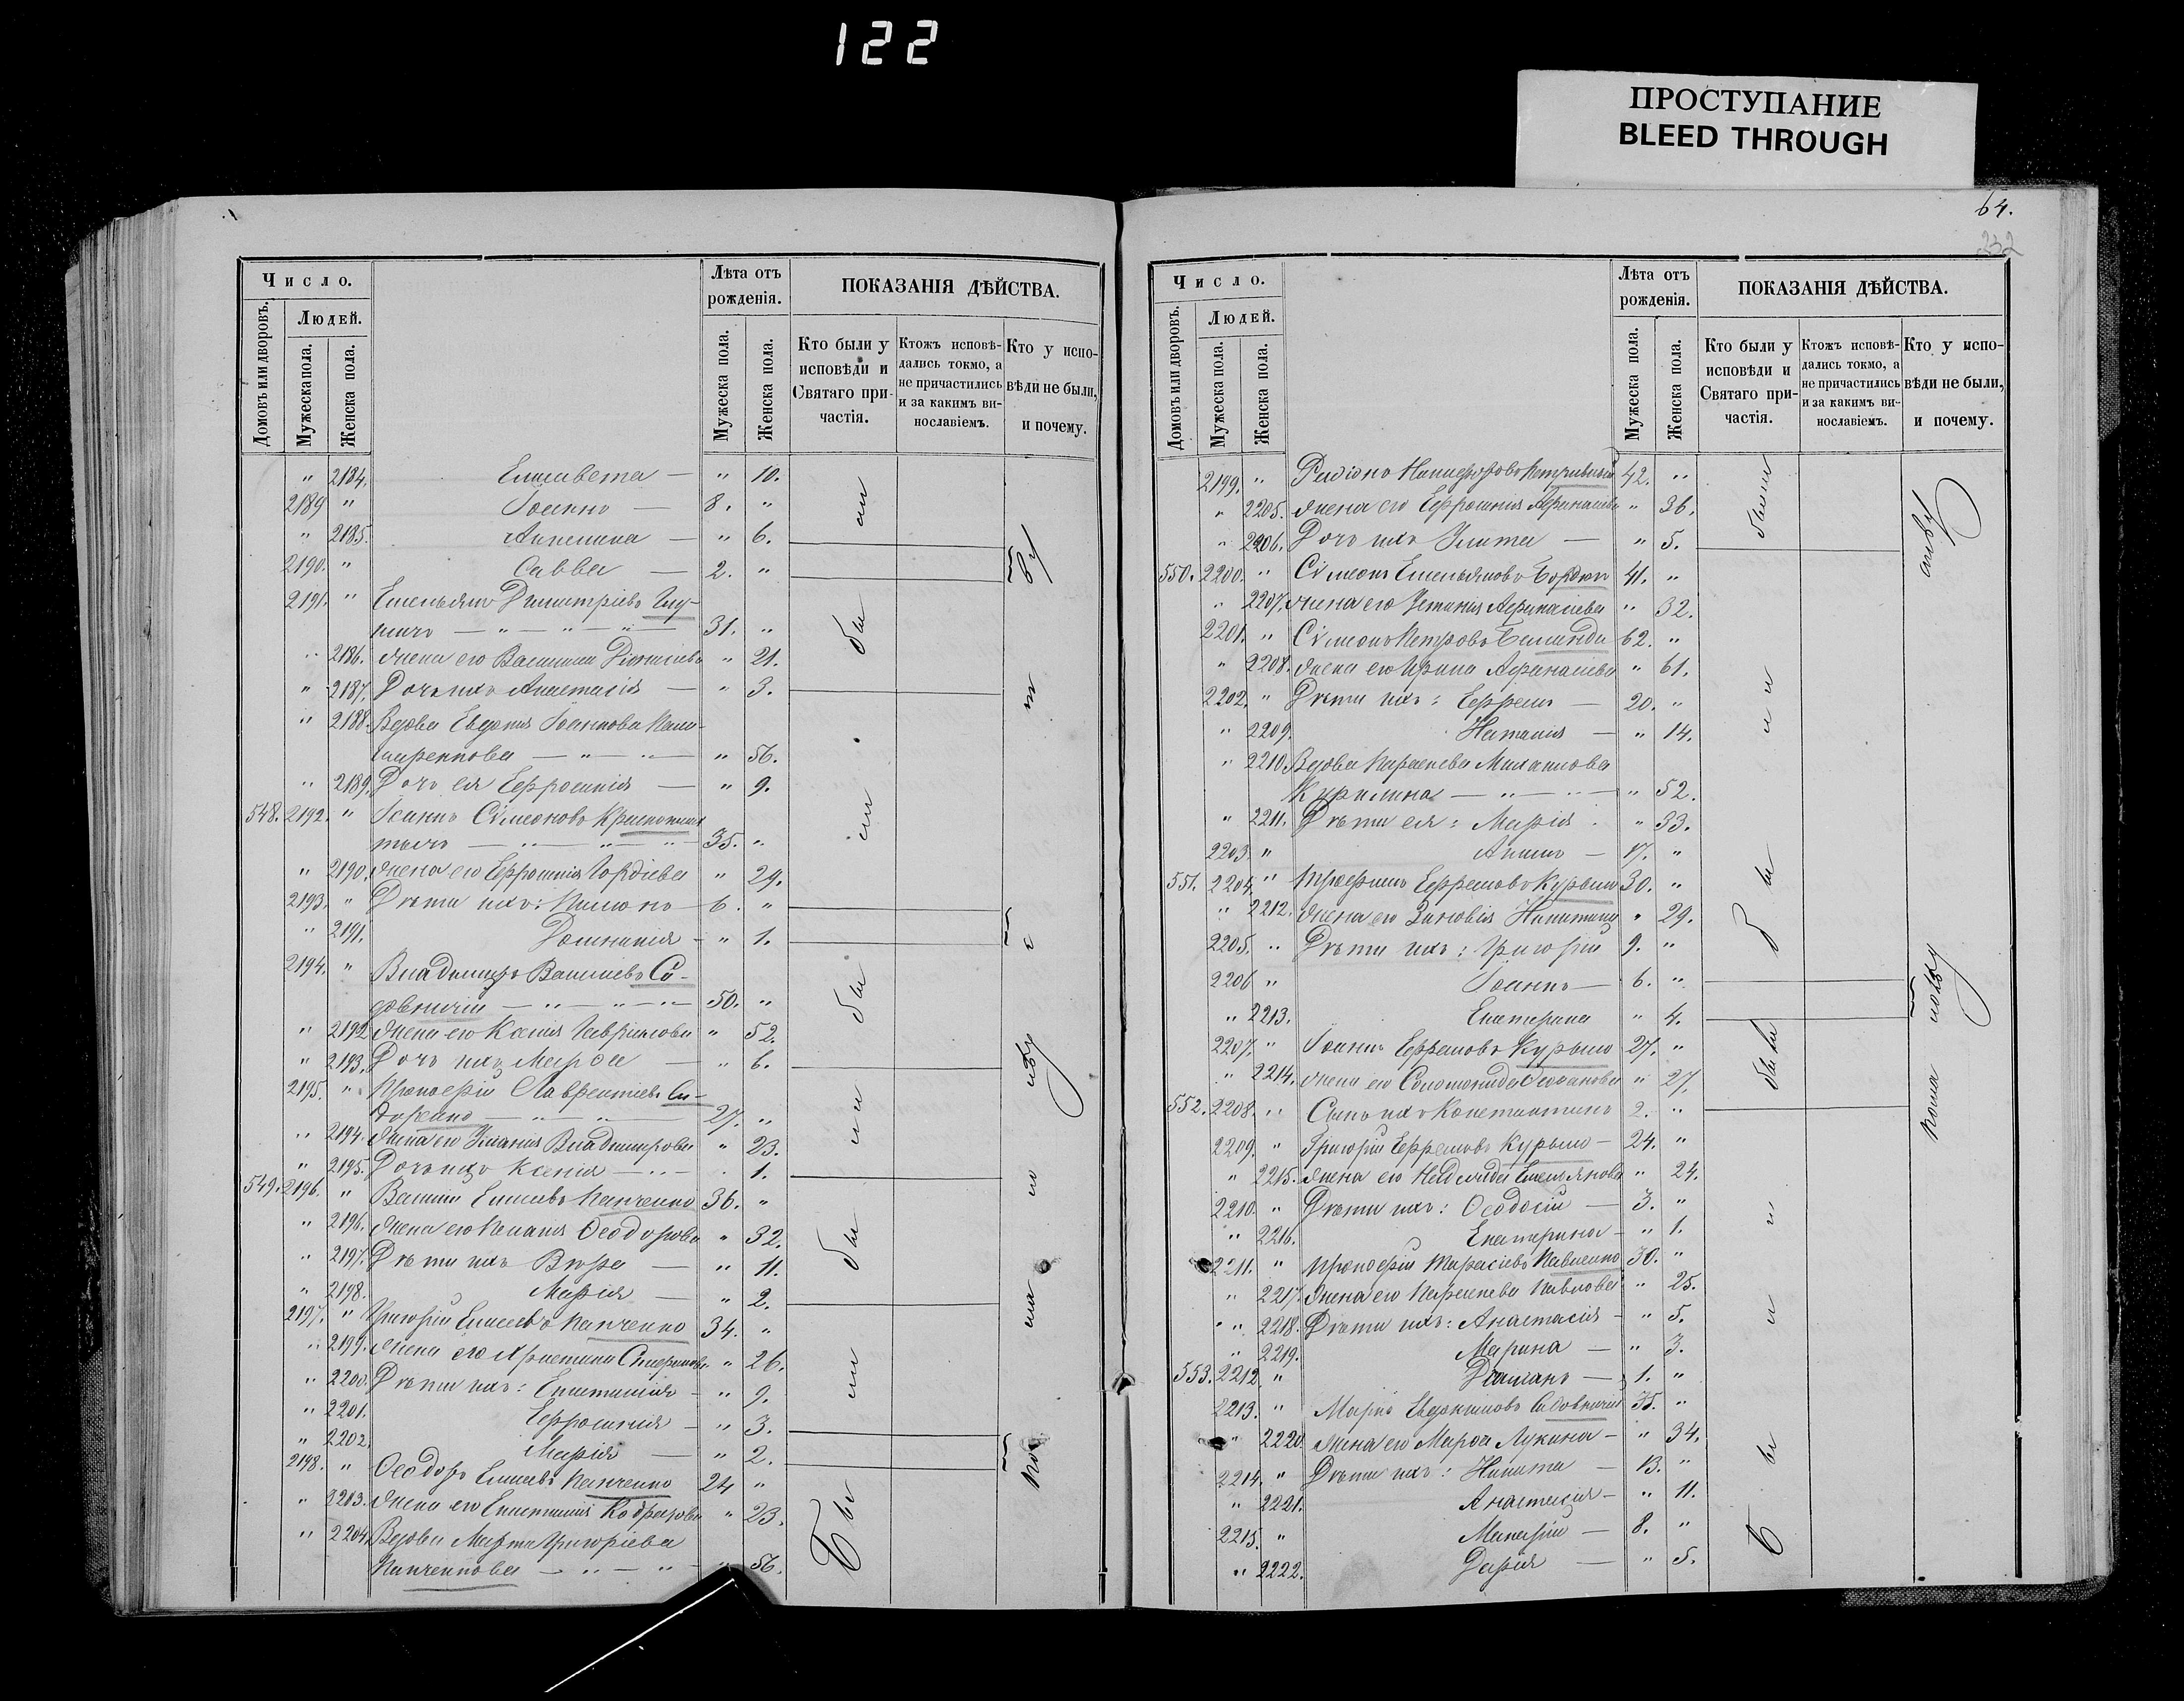 122
ПРОСТУПАНИЕ
BLEED THROUGH
Число.
Домовъ или дворовъ.
Людей.
Мужеска пола.
Женска пола.
Лѣта отъ рожденія.
Мужеска пола.
Женска пола.
ПОКАЗАНІЯ ДѢЙСТВА.
Кто были у исповѣди и Святаго причастія.
Ктожъ исповѣдались токмо, а не причастились и за какимъ винословіемъ.
Кто у исповѣди не были, и почему.
" 2184. Елисавета — " 10.
2189 " Іоаннъ — 8. "
" 2185. Анъ — " 6.
2190. " Савва — 2. "
2191. " Емельянъ Димитріевъ
— " — " — " — 31. "
" 2186. Жена его Василиса Діонисіева " 21.
" 2187. Дочь ихъ Анастасія — " 3.
" 2188. Вдова Евдокія Іоаннова
— " — " — " 56.
" 2189. Дочь ея Ефросинія — " 9.
548. 2192. " Іоаннъ Сѵмеоновъ
— " — " — " — 35. "
" 2190. Жена его Ефросинія Гордіева " 29.
2193. " Дѣти ихъ: — 6. "
" 2191. Домникія — " 1.
2194. " Владимиръ Василіевъ Са-
довничій — " — " — " 50. "
" 2192. Жена его Ксенія Гавриилова " 52.
" 2193. Дочь ихъ Марѳа — " 6.
2195. " Прокофій Лаврентіевъ Си-
доренко — " — " 27. "
" 2194. Жена его Уліанія Владимирова " 23.
" 2195. Дочь ихъ Ксенія — " — 1.
549. 2196. " Василій Елисеевъ Панченко 36. "
" 2196. Жена его Ѳеодорова " 32.
" 2197. Дѣти ихъ Вѣра — " 11.
" 2198. Марія — " 2.
2197. " Григорій Елисеевъ Панченко 34. "
" 2199. Жена его Христина Стефанова " 26.
" 2200. Дѣти ихъ: Епистимія — " 9.
" 2201. Ефросинія — " 3.
" 2202. Марія — " 2.
2198. " Ѳеодоръ Елисеевъ Панченко 24 "
" 2203. Жена его Епистимія Кодратова " 23.
" 2204. Вдова Марѳа Григоріева
Панченкова — " — " " 56.
64.
232
Число.
Домовъ или дворовъ.
Людей.
Мужеска пола.
Женска пола.
Лѣта отъ рожденія.
Мужеска пола.
Женска пола.
ПОКАЗАНІЯ ДѢЙСТВА.
Кто были у исповѣди и Святаго причастія.
Ктожъ исповѣдались токмо, а не причастились и за какимъ винословіемъ.
Кто у исповѣди не были, и почему.
2199. " Родіонъ Никифоровъ 42. "
" 2205. Жена его Ефросинія Афанасіева " 36.
" 2206. Дочь ихъ Улита — " 5.
550. 2200. " Сѵмеонъ Емельяновъ 41. "
" 2207. Жена его Устинія Афанасіева " 32.
2201. " Сѵмеонъ Петровъ 62. "
" 2208. Жена его Ирина Афанасіева " 61.
2202. " Дѣти ихъ: Ефремъ — 20. "
" 2209. Наталія — " 14.
" 2210. Вдова Параскева Михаилова
Курилина — " — " — " 52.
" 2211. Дѣти ея: Марія " 33.
2203. " — 17. "
551. 2204. " Трофимъ Ефремовъ Курыло 30. "
" 2212. Жена его Зиновія Никитина " 29.
2205. " Дѣти ихъ: Григорій 9. "
2206 " Іоаннъ — 6. "
" 2213. Екатерина " 4.
2207. " Іоаннъ Ефремовъ Курыло 27. "
" 2214. Жена его Соломонида " 27.
552. 2208. " Сынъ ихъ Константинъ 2. "
2209. " Григорій Ефремовъ Курыло — 24. "
" 2215. Жена его Емельянова " 24.
2210. " Дѣти ихъ: Ѳеодосій — 3. "
" 2216. Екатерина — " 1.
2211. " Прокофій Тарасіевъ Павленко 30. "
" 2217. Жена его Параскева Павлова " 25.
" 2218. Дѣти ихъ: Анастасія — " 5.
" 2219. Марина — " 3.
553. 2212. " — 1. "
2213. " Маркъ Евдокимовъ Садовничій 35. "
" 2220. Жена его Марѳа Лукина — " 34.
2214. " Дѣти ихъ: Никита — 13. "
" 2221. Анастасія — " 11.
2215. " Макарій — 8. "
" 2222. Дарія — " 5.